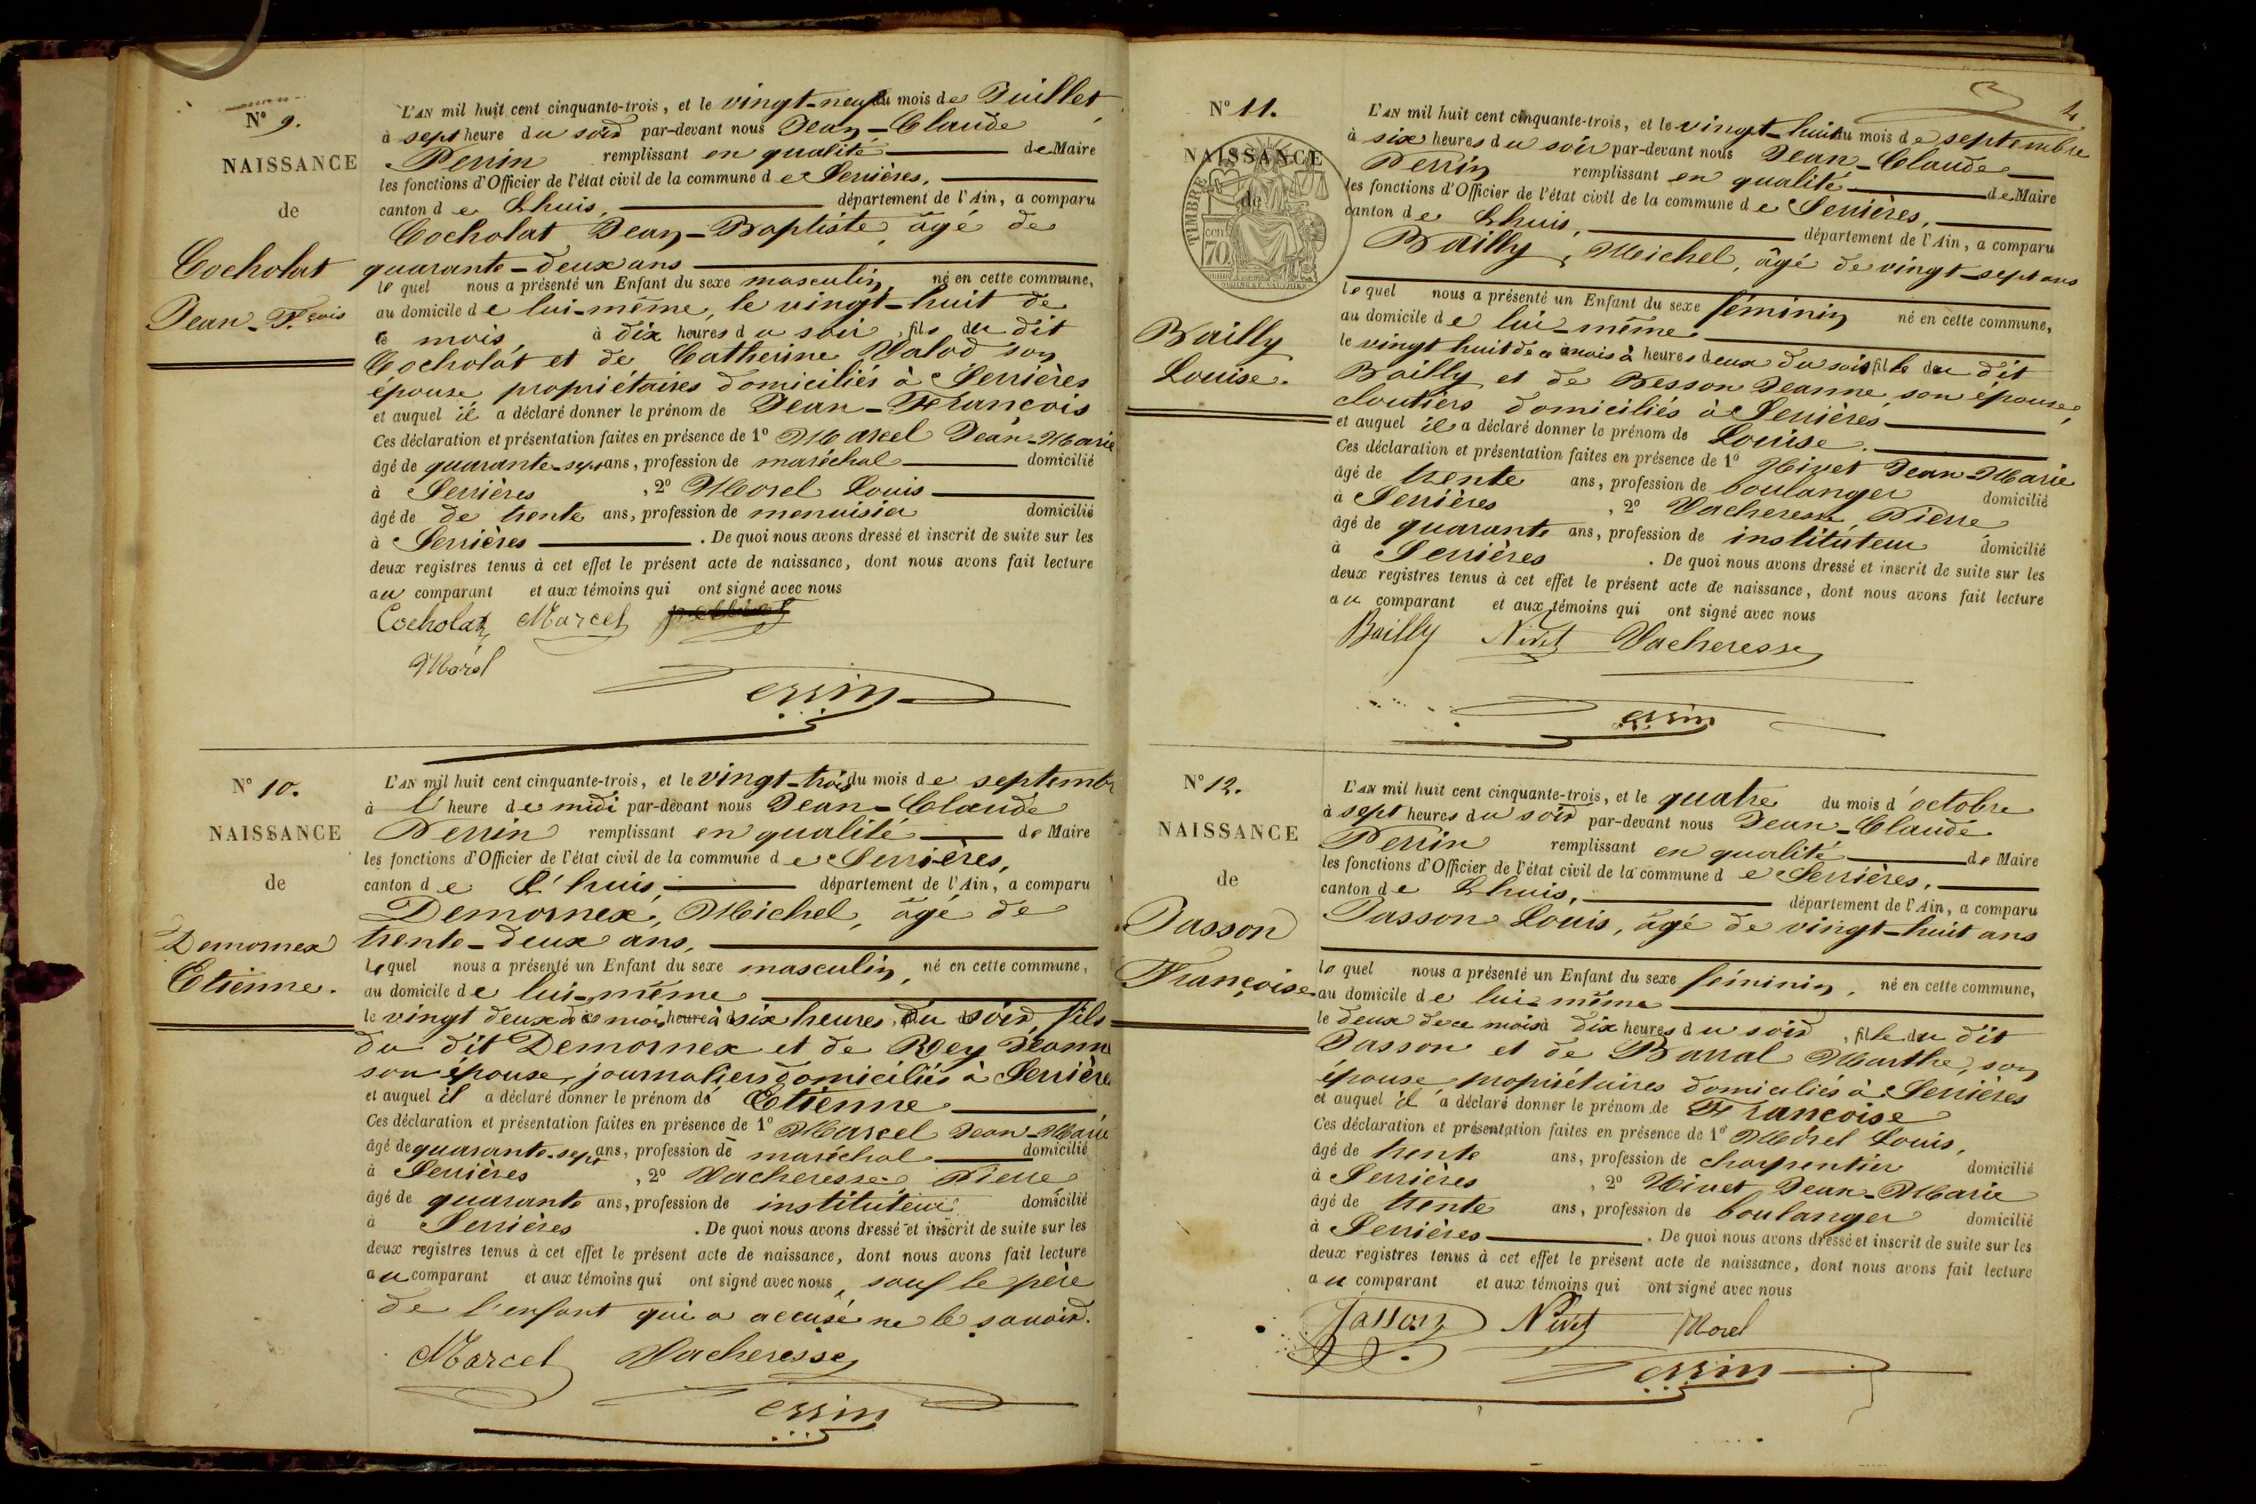 N° 9.
NAISSANCE
de
Cocholat
Jean-F.çois
L'AN mil huit cent cinquante-trois, et le vingt-neuf du mois de Juillet,
à sept heure du soir par-devant nous Jean-Claude
Perrin remplissant en qualité de Maire
les fonctions d'Officier de l'état civil de la commune de Serrières,
canton de Lhuis, département de l'Ain, a comparu
Cocholat Jean-Baptiste, âgé de
quarante-deux ans
lequel nous a présenté un Enfant du sexe masculin, né en cette commune,
au domicile de lui-même, le vingt-huit de
ce mois, à dix heures du soir, fils du dit
Cocholat et de Catherine Valod son
épouse propriétaires domiciliés à Serrières
et auquel il a déclaré donner le prénom de Jean-François
Ces déclaration et présentation faites en présence de 1° Marcel Jean-Marie
âgé de quarante-sept ans, profession de maréchal domicilié
à Serrières, 2° Morel Louis
âgé de de trente ans, profession de menuisier domicilié
à Serrières. De quoi nous avons dressé et inscrit de suite sur les
deux registres tenus à cet effet le présent acte de naissance, dont nous avons fait lecture
au comparant et aux témoins qui ont signé avec nous
Cocholat Marcel
Morel
Perrin
N° 10.
NAISSANCE
de
Demornex
Etienne.
L'AN mil huit cent cinquante-trois, et le vingt-trois du mois de septembr
à l'heure de midi par-devant nous Jean-Claude
Perrin remplissant en qualité de Maire
les fonctions d'Officier de l'état civil de la commune de Serrières,
canton de L'huis, département de l'Ain, a comparu
Demornex, Michel, âgé de
trente-deux ans,
lequel nous a présenté un Enfant du sexe masculin, né en cette commune,
au domicile de lui-même
le vingt deux de ce mois heure à six heures du soir, fils
du dit Demornex et de Rey Jeanne
son épouse, journaliers domiciliés à Serrières
et auquel il a déclaré donner le prénom de Etienne
Ces déclaration et présentation faites en présence de 1° Marcel Jean-Marie
âgé de quarante-sept ans, profession de maréchal domicilié
à Serrières, 2° Vacheresse, Pierre
âgé de quarante ans, profession de instituteur domicilié
à Serrières. De quoi nous avons dressé et inscrit de suite sur les
deux registres tenus à cet effet le présent acte de naissance, dont nous avons fait lecture
au comparant et aux témoins qui ont signé avec nous, sauf le père
de l'enfant qui a accusé ne le savoir.
Marcel Vacheresse
Perrin
4
N° 11.
NAISSANCE
de
TIMBRE
70
Bailly
Louise.
L'AN mil huit cent cinquante-trois, et le vingt-huit du mois de septembre
à six heures du soir par-devant nous Jean-Claude
Perrin remplissant en qualité de Maire
les fonctions d'Officier de l'état civil de la commune de Serrières,
canton de Lhuis, département de l'Ain, a comparu
Bailly, Michel, âgé de vingt-sept ans
lequel nous a présenté un Enfant du sexe féminin né en cette commune,
au domicile de lui-même
le vingt huit de ce mois à heures deux du soir fille du dit
Bailly et de Besson Jeanne son épouse,
cloutiers domiciliés à Serrières
et auquel il a déclaré donner le prénom de Louise.
Ces déclaration et présentation faites en présence de 1° Nivet Jean-Marie
âgé de trente ans, profession de boulanger domicilié
à Serrières, 2° Vacheresse, Pierre,
âgé de quarante ans, profession de instituteur domicilié
à Serrières. De quoi nous avons dressé et inscrit de suite sur les
deux registres tenus à cet effet le présent acte de naissance, dont nous avons fait lecture
au comparant et aux témoins qui ont signé avec nous
Bailly Nivet Vacheresse
Perrin
N° 12.
NAISSANCE
de
Jasson
Françoise
L'AN mil huit cent cinquante-trois, et le quatre du mois d'octobre
à sept heures du soir par-devant nous Jean-Claude
Perrin remplissant en qualité de Maire
les fonctions d'Officier de l'état civil de la commune de Serrières,
canton de Lhuis, département de l'Ain, a comparu
Jasson Louis, âgé de vingt-huit ans
lequel nous a présenté un Enfant du sexe féminin, né en cette commune,
au domicile de lui-même
le deux de ce mois à dix heures du soir, fille du dit
Jasson et de Barral Marthe, son
épouse, propriétaires domiciliés à Serrières
et auquel il a déclaré donner le prénom de Françoise
Ces déclaration et présentation faites en présence de 1° Morel Louis,
âgé de trente ans, profession de charpentier domicilié
à Serrières, 2° Nivet Jean-Marie
âgé de trente ans, profession de boulanger domicilié
à Serrières. De quoi nous avons dressé et inscrit de suite sur les
deux registres tenus à cet effet le présent acte de naissance, dont nous avons fait lecture
au comparant et aux témoins qui ont signé avec nous
Jasson Nivet Morel
Perrin